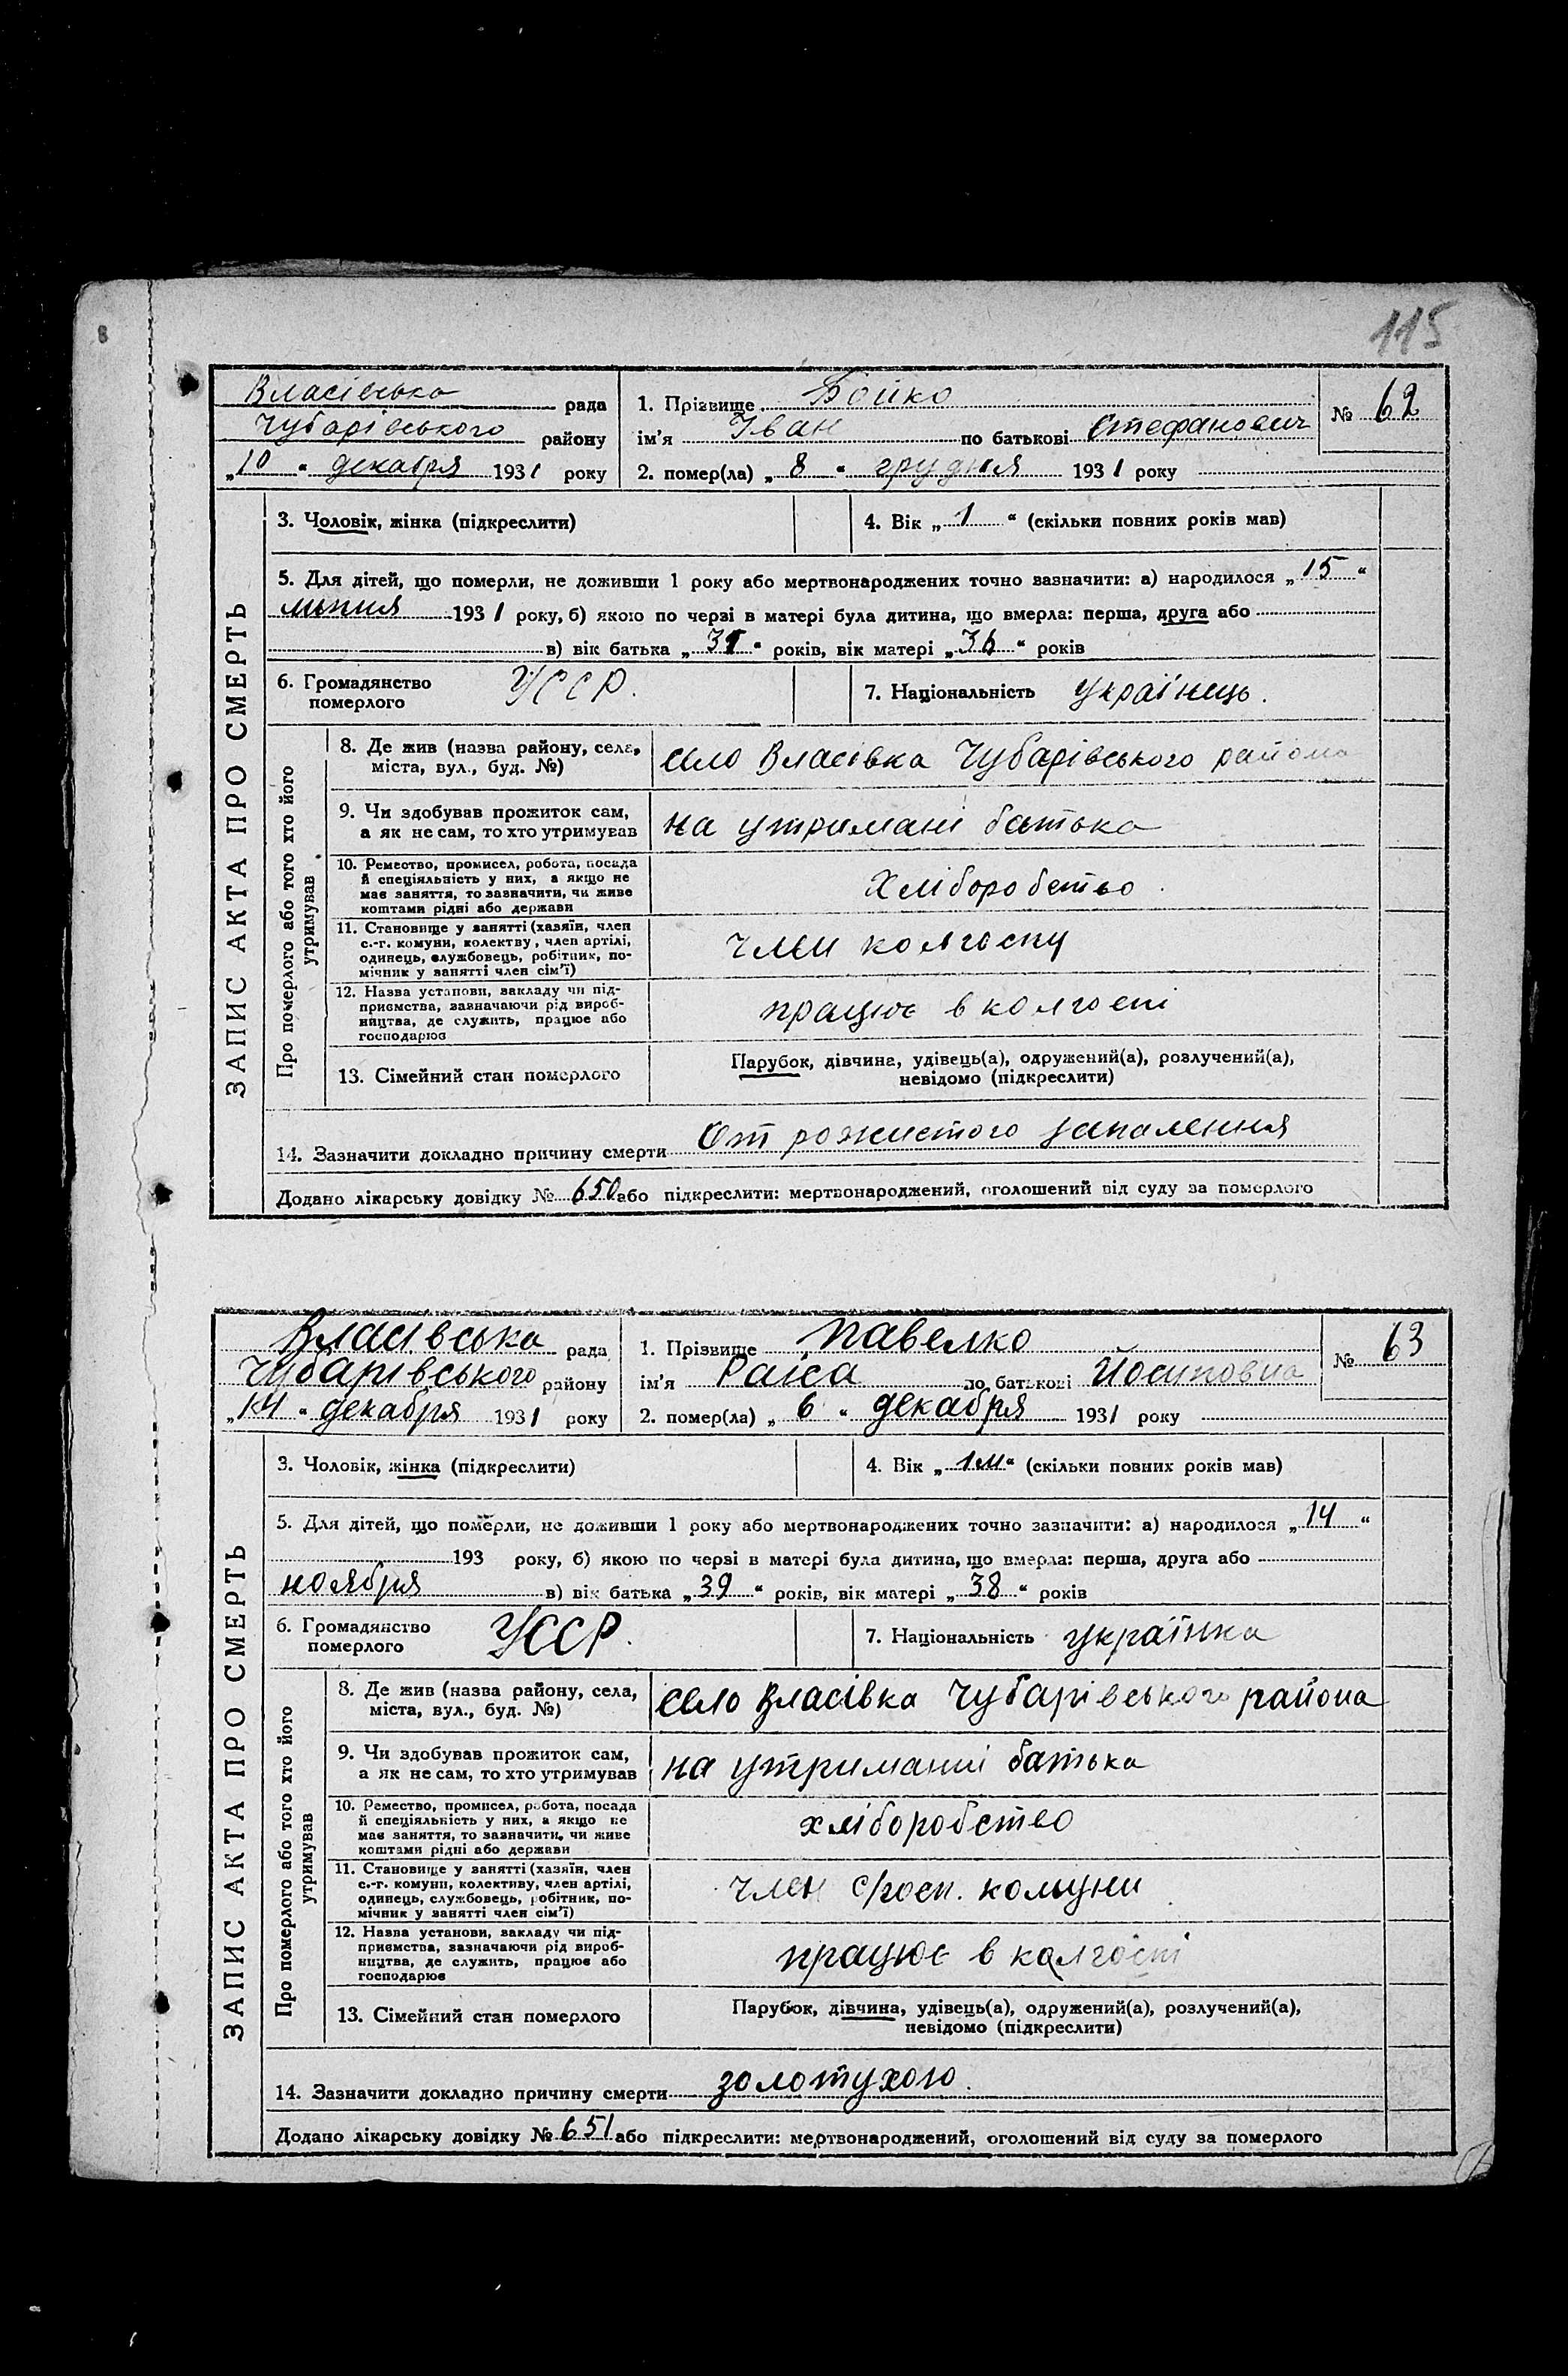 115
Власівська рада
Чубарівського району
„10“ декабря 1931 року
1. Прізвище Бойко
ім'я Іван по батькові Стефанович
2. помер(ла) „8“ грудня 1931 року
№ 62
ЗАПИС АКТА ПРО СМЕРТЬ
3. Чоловік, жінка (підкреслити)
4. Вік „1“ (скільки повних років мав)
5. Для дітей, що померли, не доживши 1 року або мертвонароджених точно зазначити: а) народилося „15“
липня 1931 року, б) якою по черзі в матері була дитина, що вмерла: перша, друга або
в) вік батька „“ років, вік матері „“ років
6. Громадянство
померлого
УССР.
7. Національність українець.
Про померлого або того хто його
утримував
8. Де жив (назва району, села,
міста, вул., буд. №)
село Власівка Чубарівського района
9. Чи здобував прожиток сам,
а як не сам, то хто утримував
на утримані батька
10. Ремество, промисел, робота, посада
й спеціяльність у них, а якщо не
має заняття, то зазначити, чи живе
коштами рідні або держави
Хліборобство.
11. Становище у занятті (хазяїн, член
с.-г. комуни, колектву, член артілі,
одинець, службовець, робітник, по-
мічник у занятті член сім'ї)
член колгоспу
12. Назва установи, закладу чи під-
приємства, зазначаючи рід вироб-
ництва, де служить, працює або
господарює
працює в колгоспі
13. Сімейний стан померлого
Парубок, дівчина, удівець(а), одружений(а), розлучений(а),
невідомо (підкреслити)
14. Зазначити докладно причину смерти От рожистого запалення
Додано лікарську довідку № 650 або підкреслити: мертвонароджений, оголошений від суду за померлого
Власівська рада
Чубарівського району
„14“ декабря 1931 року
1. Прізвище Павелко
ім'я Раіса по батькові Йосиповна
2. помер(ла) „6“ декабря 1931 року
№ 63
ЗАПИС АКТА ПРО СМЕРТЬ
3. Чоловік, жінка (підкреслити)
4. Вік „1м“ (скільки повних років мав)
5. Для дітей, що померли, не доживши 1 року або мертвонароджених точно зазначити: а) народилося „14“
193 року, б) якою по черзі в матері була дитина, що вмерла: перша, друга або
ноября в) вік батька „39“ років, вік матері „38“ років
6. Громадянство
померлого
УССР.
7. Національність українка
Про померлого або того хто його
утримував
8. Де жив (назва району, села,
міста, вул., буд. №)
село Власівка Чубарівського района
9. Чи здобував прожиток сам,
а як не сам, то хто утримував
на утриманні батька
10. Ремество, промисел, робота, посада
й спеціяльність у них, а якщо не
має заняття, то зазначити, чи живе
коштами рідні або держави
хліборобство
11. Становище у занятті (хазяїн, член
с.-г. комуни, колективу, член артілі,
одинець, службовець, робітник, по-
мічник у занятті член сім'ї)
член с/госп. комуни
12. Назва установи, закладу чи під-
приємства, зазначаючи рід вироб-
ництва, де служить, працює або
господарює
працює в колгоспі
13. Сімейний стан померлого
Парубок, дівчина, удівець(а), одружений(а), розлучений(а),
невідомо (підкреслити)
14. Зазначити докладно причину смерти золотухою.
Додано лікарську довідку № 651 або підкреслити: мертвонароджений, оголошений від суду за померлого